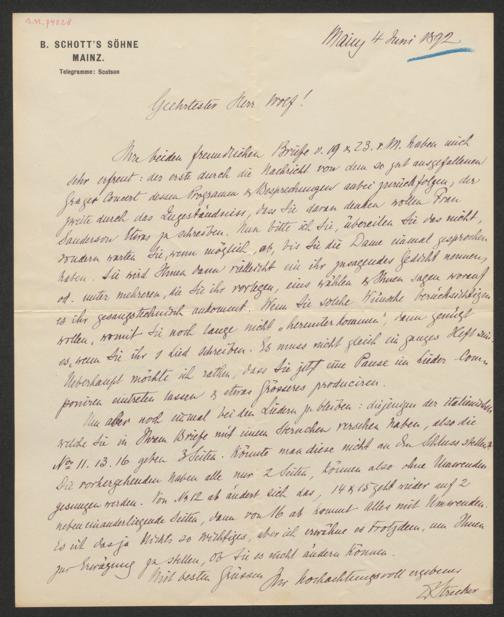 B. SCHOTT'S SÖHNE
MAINZ.
Telegramme: Scotson
Mainz 4 Juni 1892
Geehrtester Herr Wolf!
Ihre beiden freundlichen Briefe v. 19 & 23. v. M. haben mich
sehr erfreut: der erste durch die Nachricht von dem so gut ausgefallenen
Grazer Concert dessen Programm & Besprechungen anbei zurückfolgen, der
zweite durch das Zugeständniss, dass Sie daran denken wollen Frau
Sanderson Etwas zu schreiben. Nun bitte ich Sie, übereilen Sie das nicht,
sondern warten Sie, wenn möglich, ab, bis Sie die Dame einmal gesprochen
haben. Sie wird Ihnen dann vielleicht ein ihr zusagendes Gedicht nennen,
od. unter mehreren, die Sie ihr vorlegen, eins wählen & Ihnen sagen worauf
es ihr gesangstechnisch ankommt. Wenn Sie solche Wünsche berücksichtigen
wollen, womit Sie noch lange nicht „herunterkommen", dann genügt
es, wenn Sie ihr 1 Lied schreiben. Es muss nicht gleich ein ganzes Heft sein.
Ueberhaupt möchte ich rathen, dass Sie jetzt eine Pause im Lieder-Com-
poniren eintreten lassen & etwas Grösseres produciren.
Um aber noch einmal bei den Liedern zu bleiben: diejenigen der italienischen
welche Sie in Ihrem Briefe mit einem Sternchen versehen haben, also die
No 11. 13. 16 geben 3 Seiten. Könnte man diese nicht an den Schluss stellen?
Die vorhergehenden haben alle nur 2 Seiten, können also ohne Umwenden
gesungen werden. Von No 12 ab ändert sich das, 14 & 15 geht wieder auf 2
nebeneinanderliegende Seiten, dann von 16 ab kommt Alles mit Umwenden.
Es ist das ja Nichts so Wichtiges, aber ich erwähne es trotzdem, um Ihnen
zur Erwägung zu stellen, ob Sie es nicht ändern können.
Mit besten Grüssen Ihr hochachtungsvoll ergebener
Dr Strecker